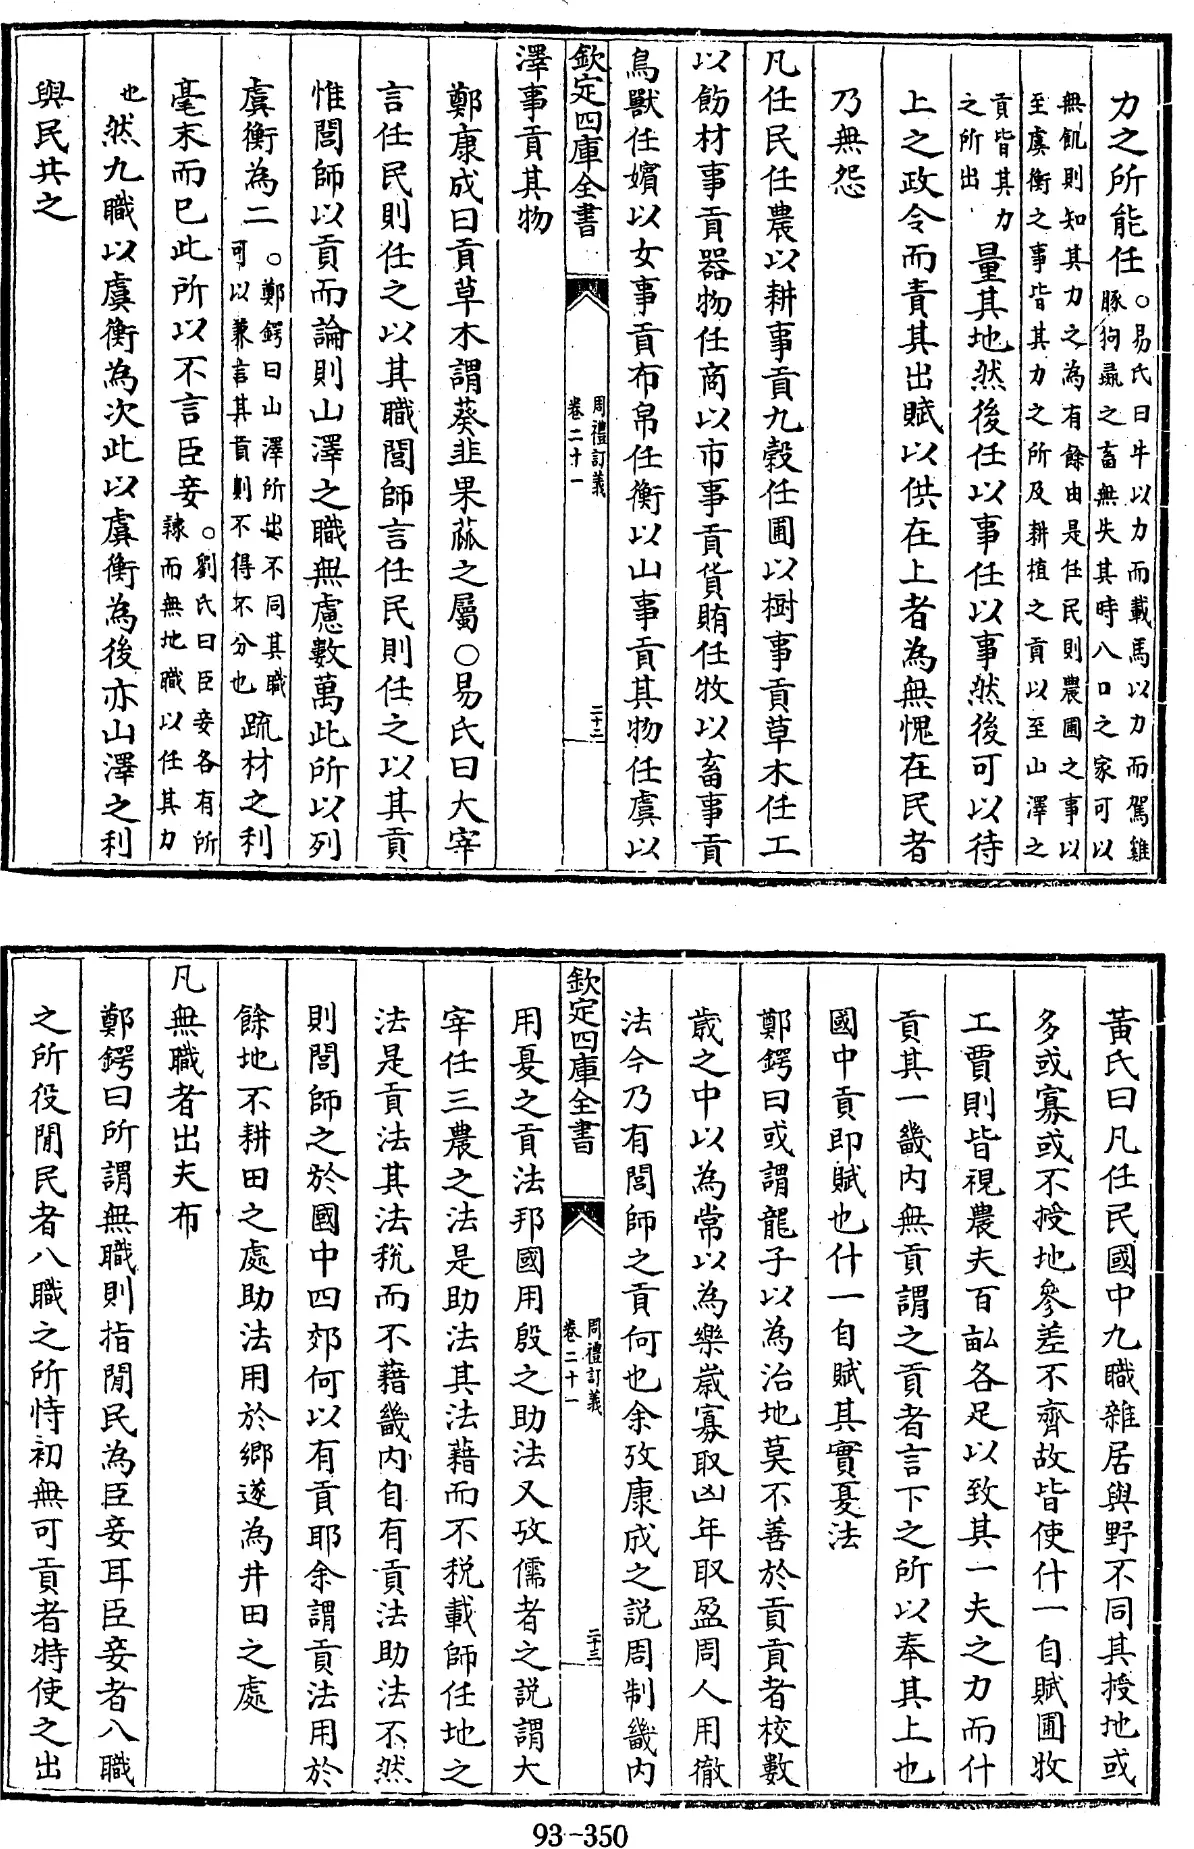 力之所能任○易氏曰牛以力而載馬以力而駕雞
豚狗彘之畜無失其時八口之家可以
無飢則知其力之為有餘由是任民則農圃之事以
至虞衡之事皆其力之所及耕植之貢以至山澤之
貢皆其力
之所出量其地然後任以事任以事然後可以待
上之政令而責其出賦以供在上者為無愧在民者
乃無怨
凡任民任農以耕事貢九穀任圃以樹事貢草木任工
以飭材事貢器物任商以市事貢貨賄任牧以畜事貢
鳥獸任嬪以女事貢布帛任衡以山事貢其物任虞以
欽定四庫全書
周禮訂義
卷二十一
二十二
澤事貢其物
鄭康成曰貢草木謂葵韭果蓏之屬○易氏曰大宰
言任民則任之以其職閭師言任民則任之以其貢
惟閭師以貢而論則山澤之職無慮數萬此所以列
虞衡為二○鄭鍔曰山澤所出不同其職
可以兼言其貢則不得不分也疏材之利
毫末而已此所以不言臣妾○劉氏曰臣妾各有所
隸而無地職以任其力
也然九職以虞衡為次此以虞衡為後亦山澤之利
與民共之
黃氏曰凡任民國中九職雜居與野不同其授地或
多或寡或不授地參差不齊故皆使什一自賦圃牧
工賈則皆視農夫百畝各足以致其一夫之力而什
貢其一畿内無貢謂之貢者言下之所以奉其上也
國中貢即賦也什一自賦其實夏法
鄭鍔曰或謂龍子以為治地莫不善於貢貢者校數
歲之中以為常以為樂歲寡取凶年取盈周人用徹
法今乃有閭師之貢何也余攷康成之說周制畿内
欽定四庫全書
周禮訂義
卷二十一
二十三
用夏之貢法邦國用殷之助法又攷儒者之説謂大
宰任三農之法是助法其法藉而不税載師任地之
法是貢法其法税而不藉畿内自有貢法助法不然
則閭師之於國中四郊何以有貢耶余謂貢法用於
餘地不耕田之處助法用於鄉遂為井田之處
凡無職者出夫布
鄭鍔曰所謂無職則指閒民為臣妾耳臣妾者八職
之所役閒民者八職之所恃初無可貢者特使之出
93-350